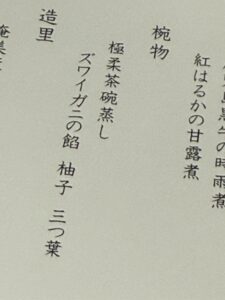 黒牛の時雨煮
紅はるかの甘露煮
椀物
極柔茶碗蒸し
ズワイガニの餡 柚子 三つ葉
造里
奄美